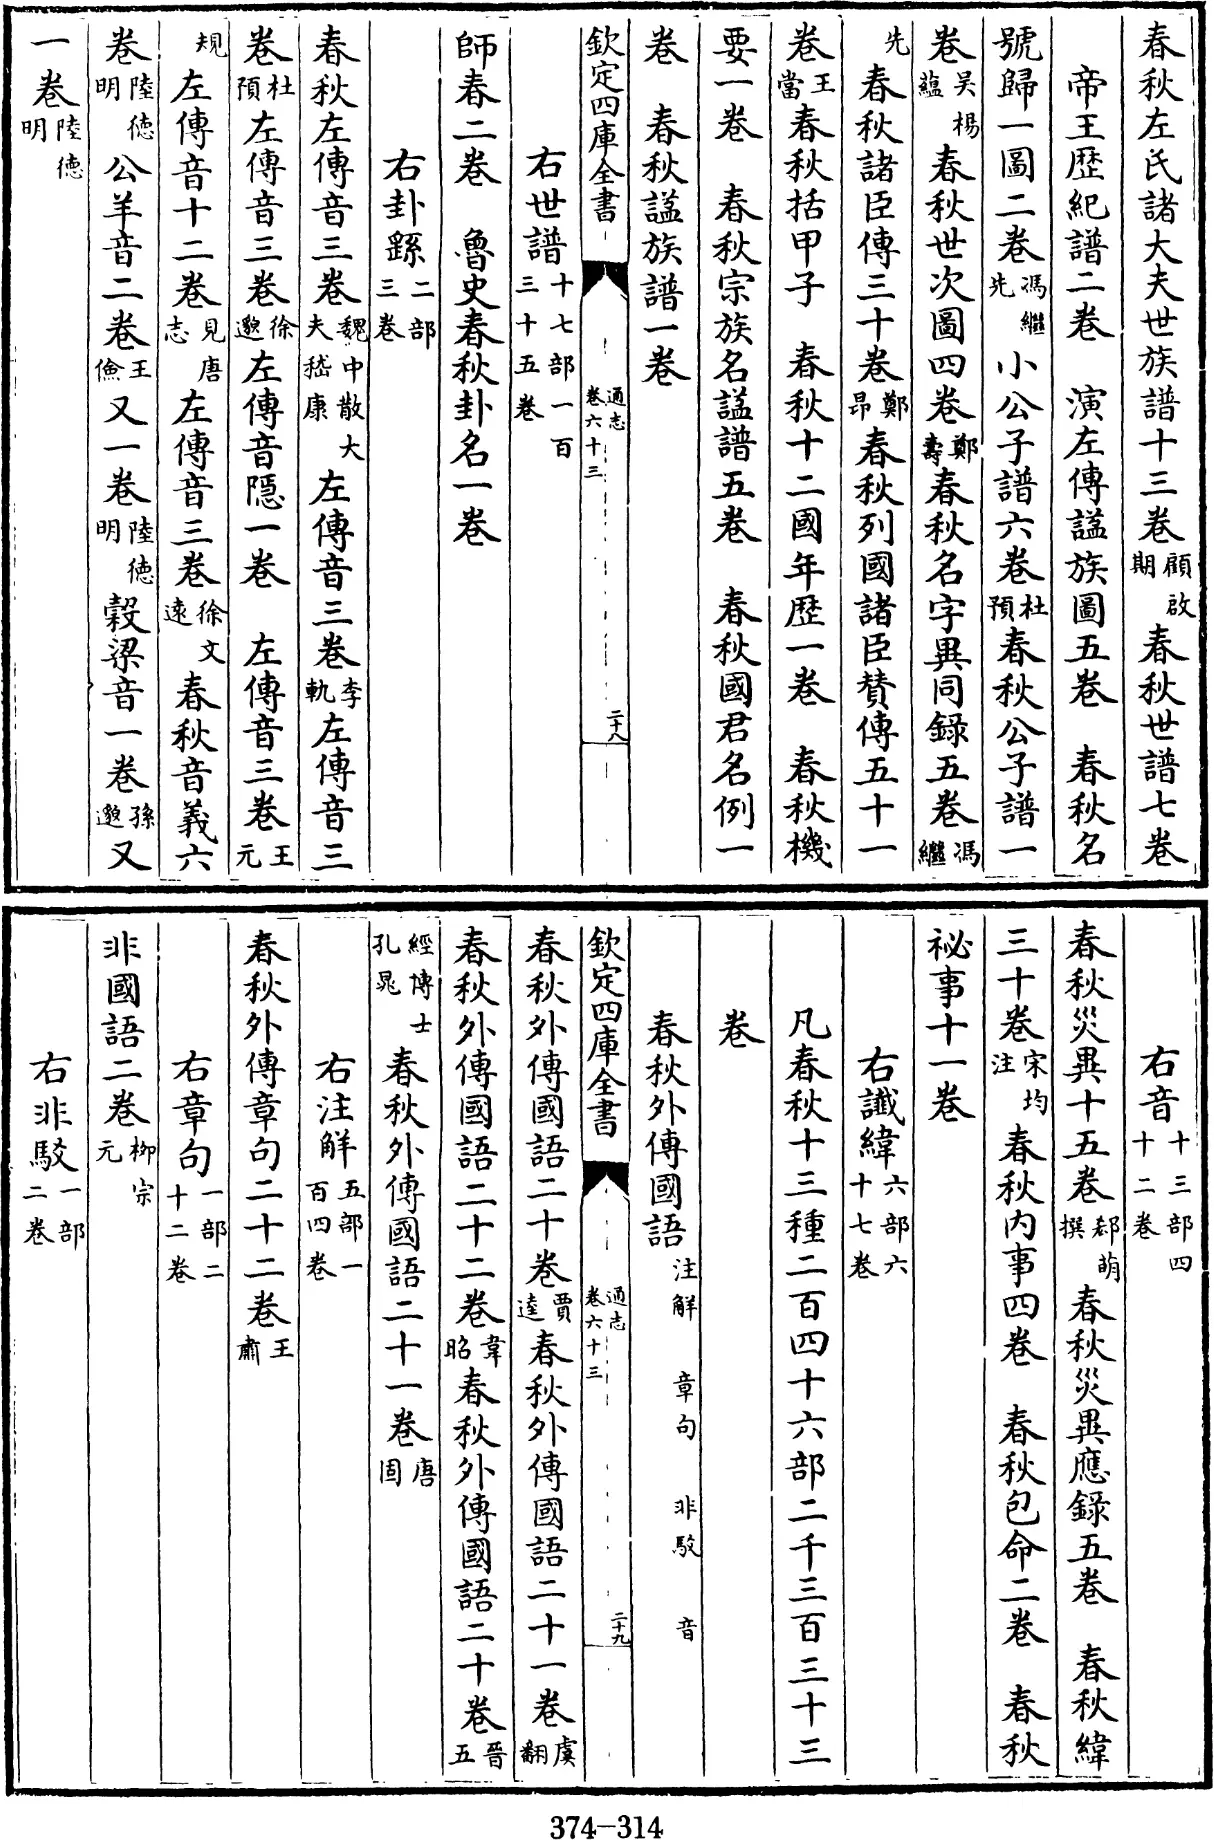 春秋左氏諸大夫世族譜十三卷顧啟期春秋世譜七卷
帝王歴紀譜二卷　演左傳諡族圖五卷　春秋名
號歸一圖二卷馮繼先小公子譜六卷杜預春秋公子譜一
卷吳楊蘊春秋世次圖四卷鄭壽春秋名字異同録五卷馮繼
先春秋諸臣傳三十卷鄭昂春秋列國諸臣賛傳五十一
卷王當春秋括甲子　春秋十二國年歴一卷　春秋機
要一卷　春秋宗族名諡譜五卷　春秋國君名例一
卷　春秋諡族譜一卷
欽定四庫全書　通志卷六十三　二十八
右世譜十七部一百三十五卷
師春二卷　魯史春秋卦名一卷
右卦繇二部三卷
春秋左傳音三卷魏中散大夫嵇康左傳音三卷李軌左傳音三
卷杜預左傳音三卷徐邈左傳音隱一卷　左傳音三卷王元
規左傳音十二卷見唐志左傳音三卷徐文遠春秋音義六
卷陸德明公羊音二卷王儉又一卷陸德明榖梁音一卷孫邈又
一卷陸德明
右音十三部四十二卷
春秋災異十五卷郄萌撰春秋災異應録五卷　春秋緯
三十卷宋均注春秋内事四卷　春秋包命二卷　春秋
祕事十一卷
右讖緯六部六十七卷
凡春秋十三種二百四十六部二千三百三十三
卷
春秋外傳國語注解　章句　非駁　音
欽定四庫全書　通志卷六十三　二十九
春秋外傳國語二十卷賈逵春秋外傳國語二十一卷虞翻
春秋外傳國語二十二卷韋昭春秋外傳國語二十卷晉五
經博士孔晁春秋外傳國語二十一卷唐固
右注解五部一百四卷
春秋外傳章句二十二卷王肅
右章句一部二十二卷
非國語二卷栁宗元
右非駁一部二卷
374-314